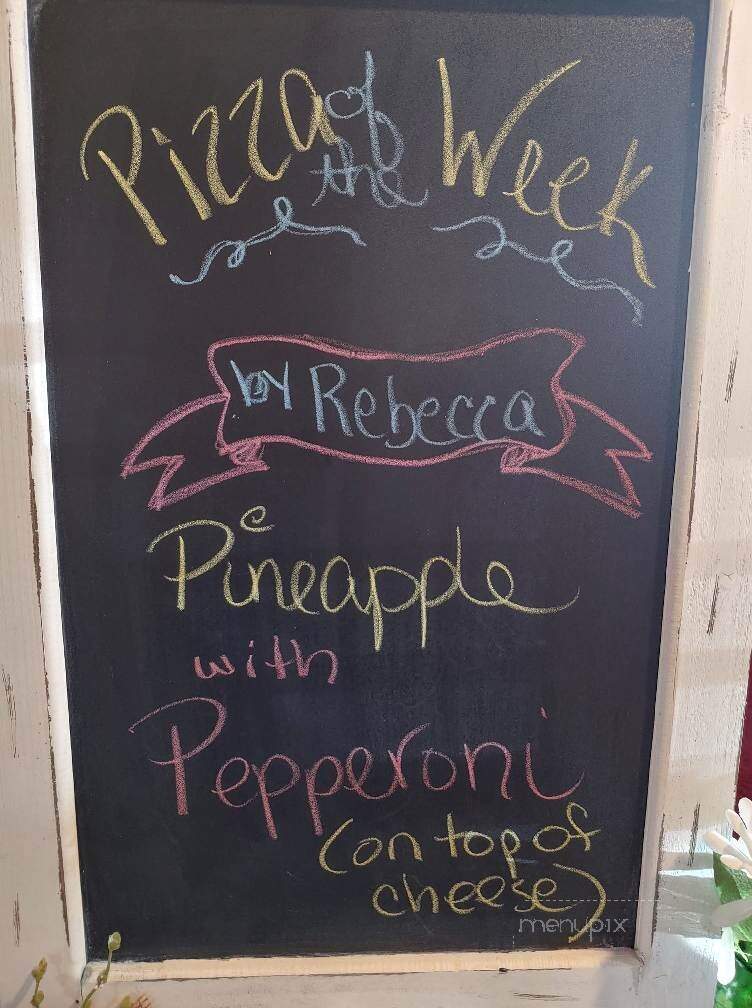 Pizza of the Week
by Rebecca
Pineapple
with
Pepperoni
(on top of
cheese)
menupix